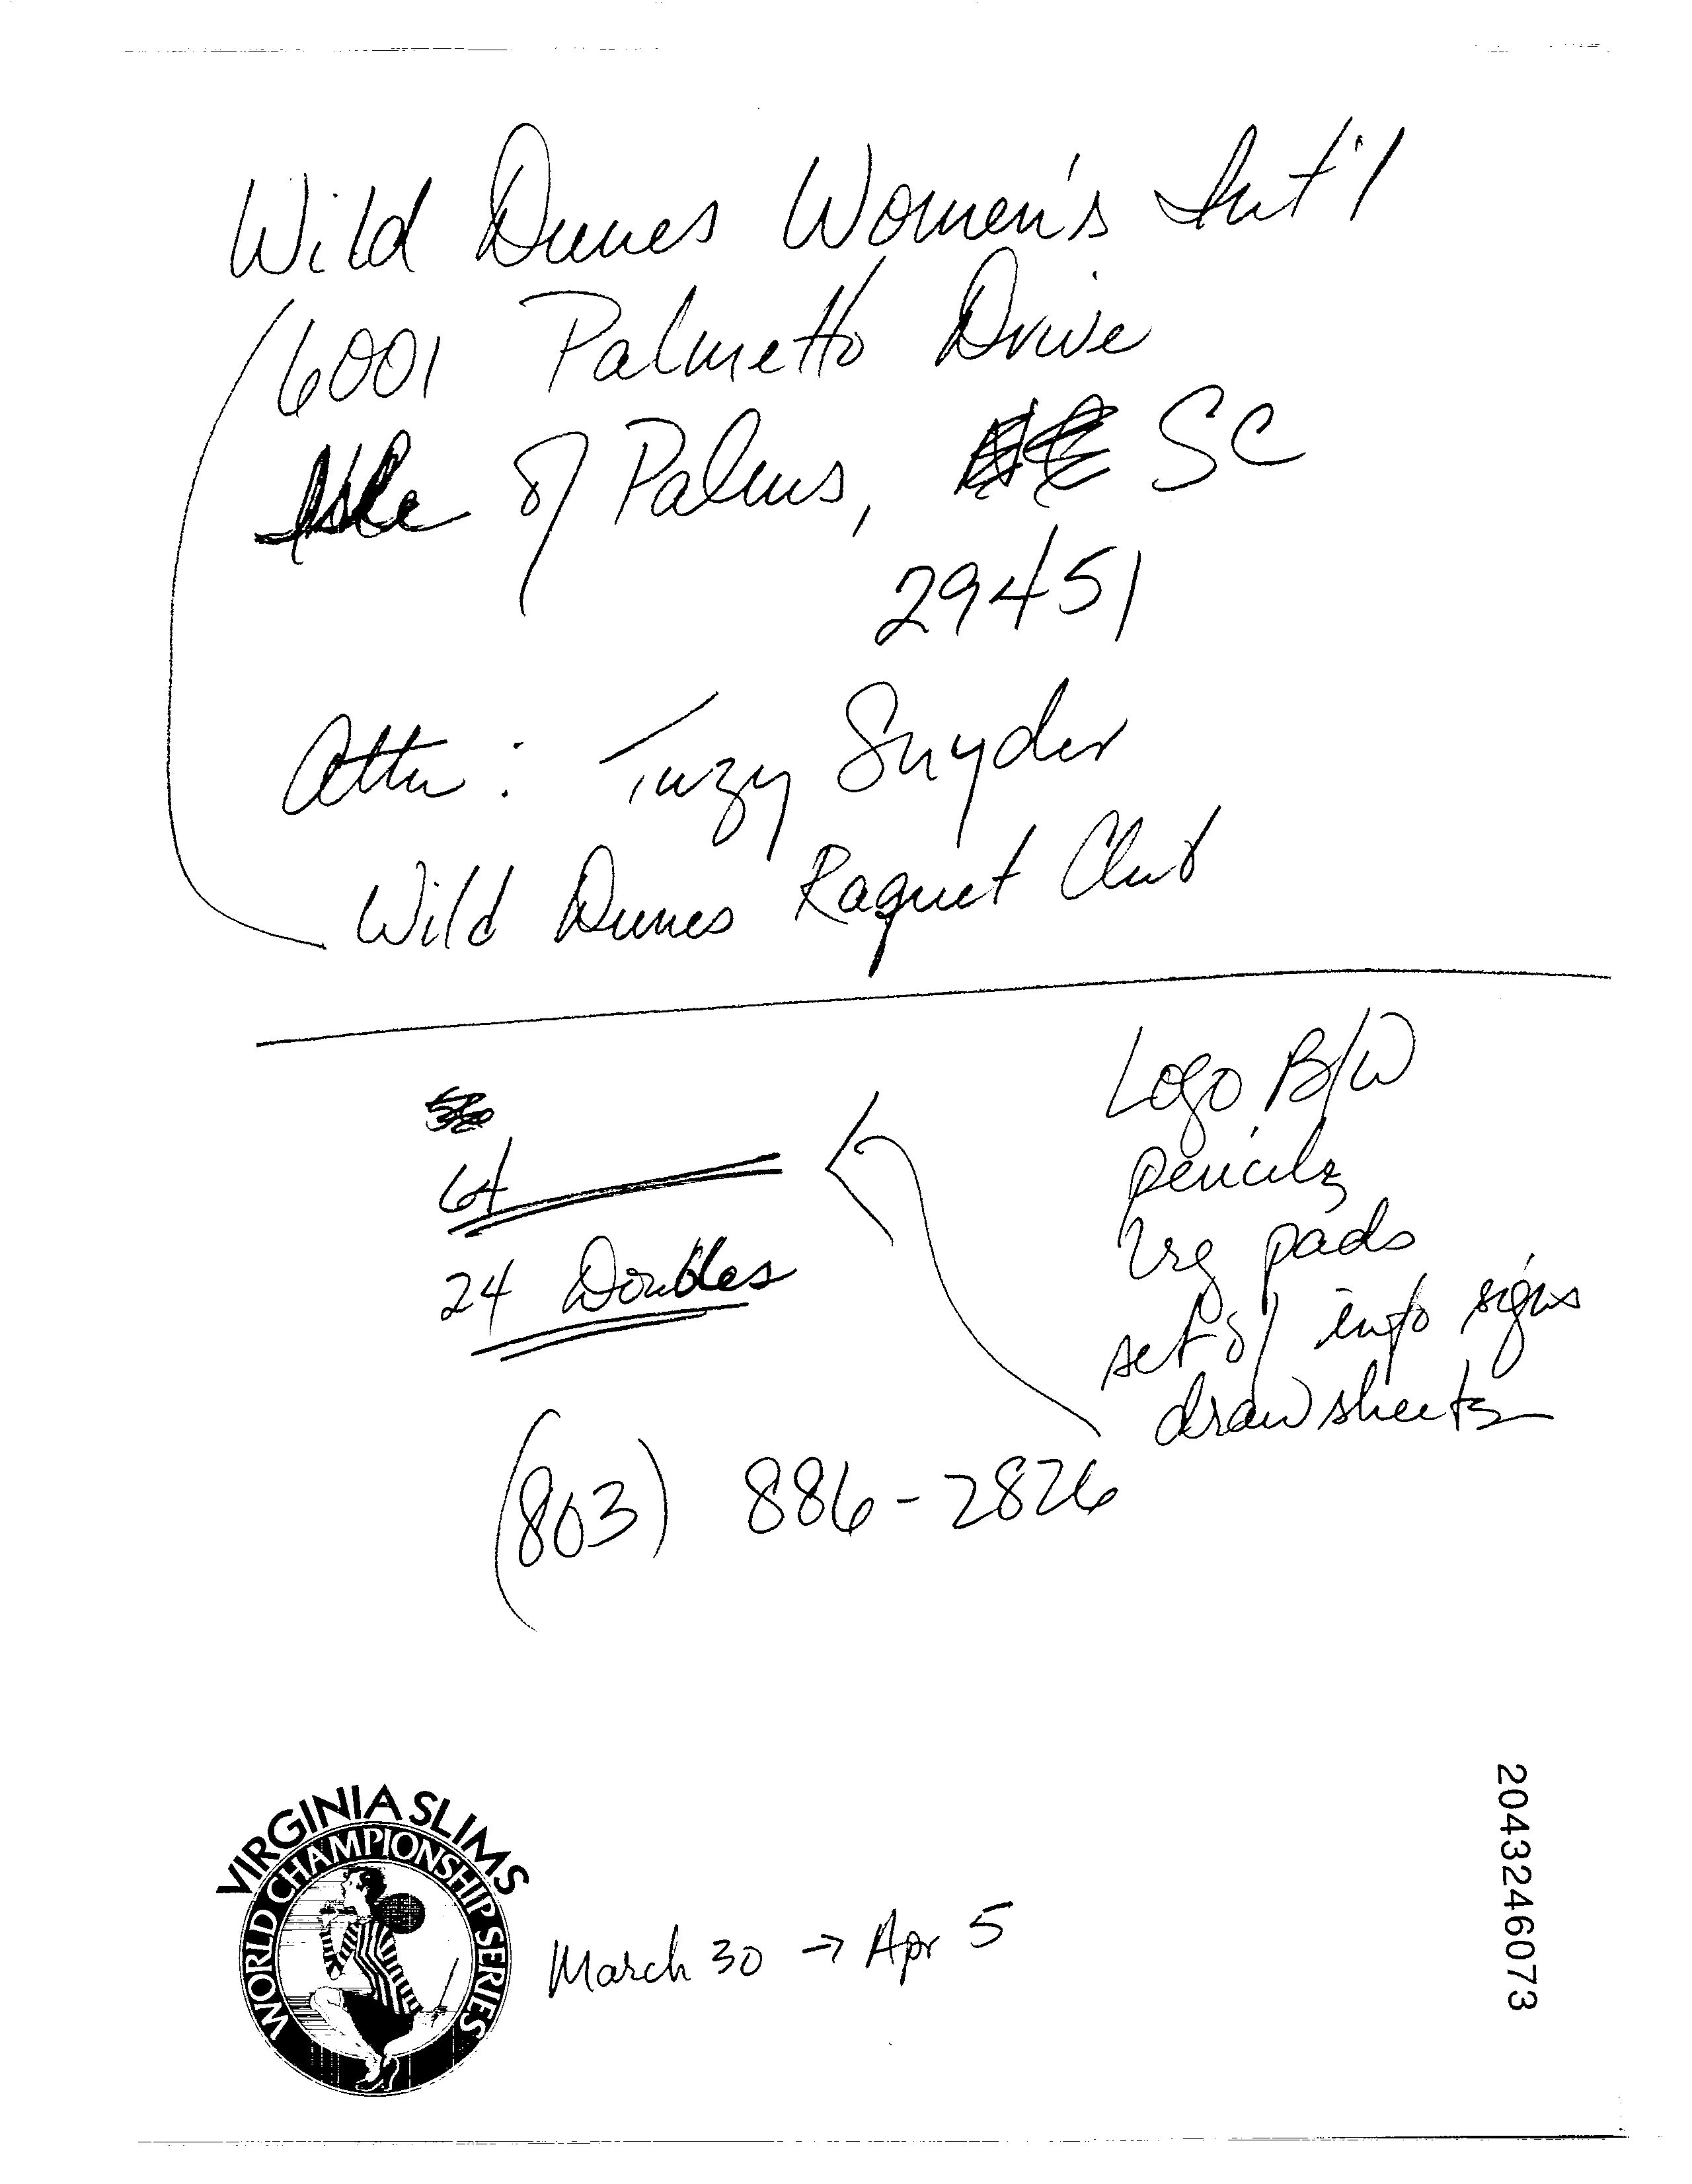 Wild Dunes Women's Int'l
6001 Palmetto Drive
Isle of Palms, SC
29451
Attn: Snyder
Wild Dunes Raquet Club
Logo B/W
pencils
lrg pads
set of info signs
draw sheets
64
24 Doubles
(803) 886-2826
VIRGINIA SLIMS
WORLD CHAMPIONSHIP SERIES
March 30 → Apr 5
2043246073